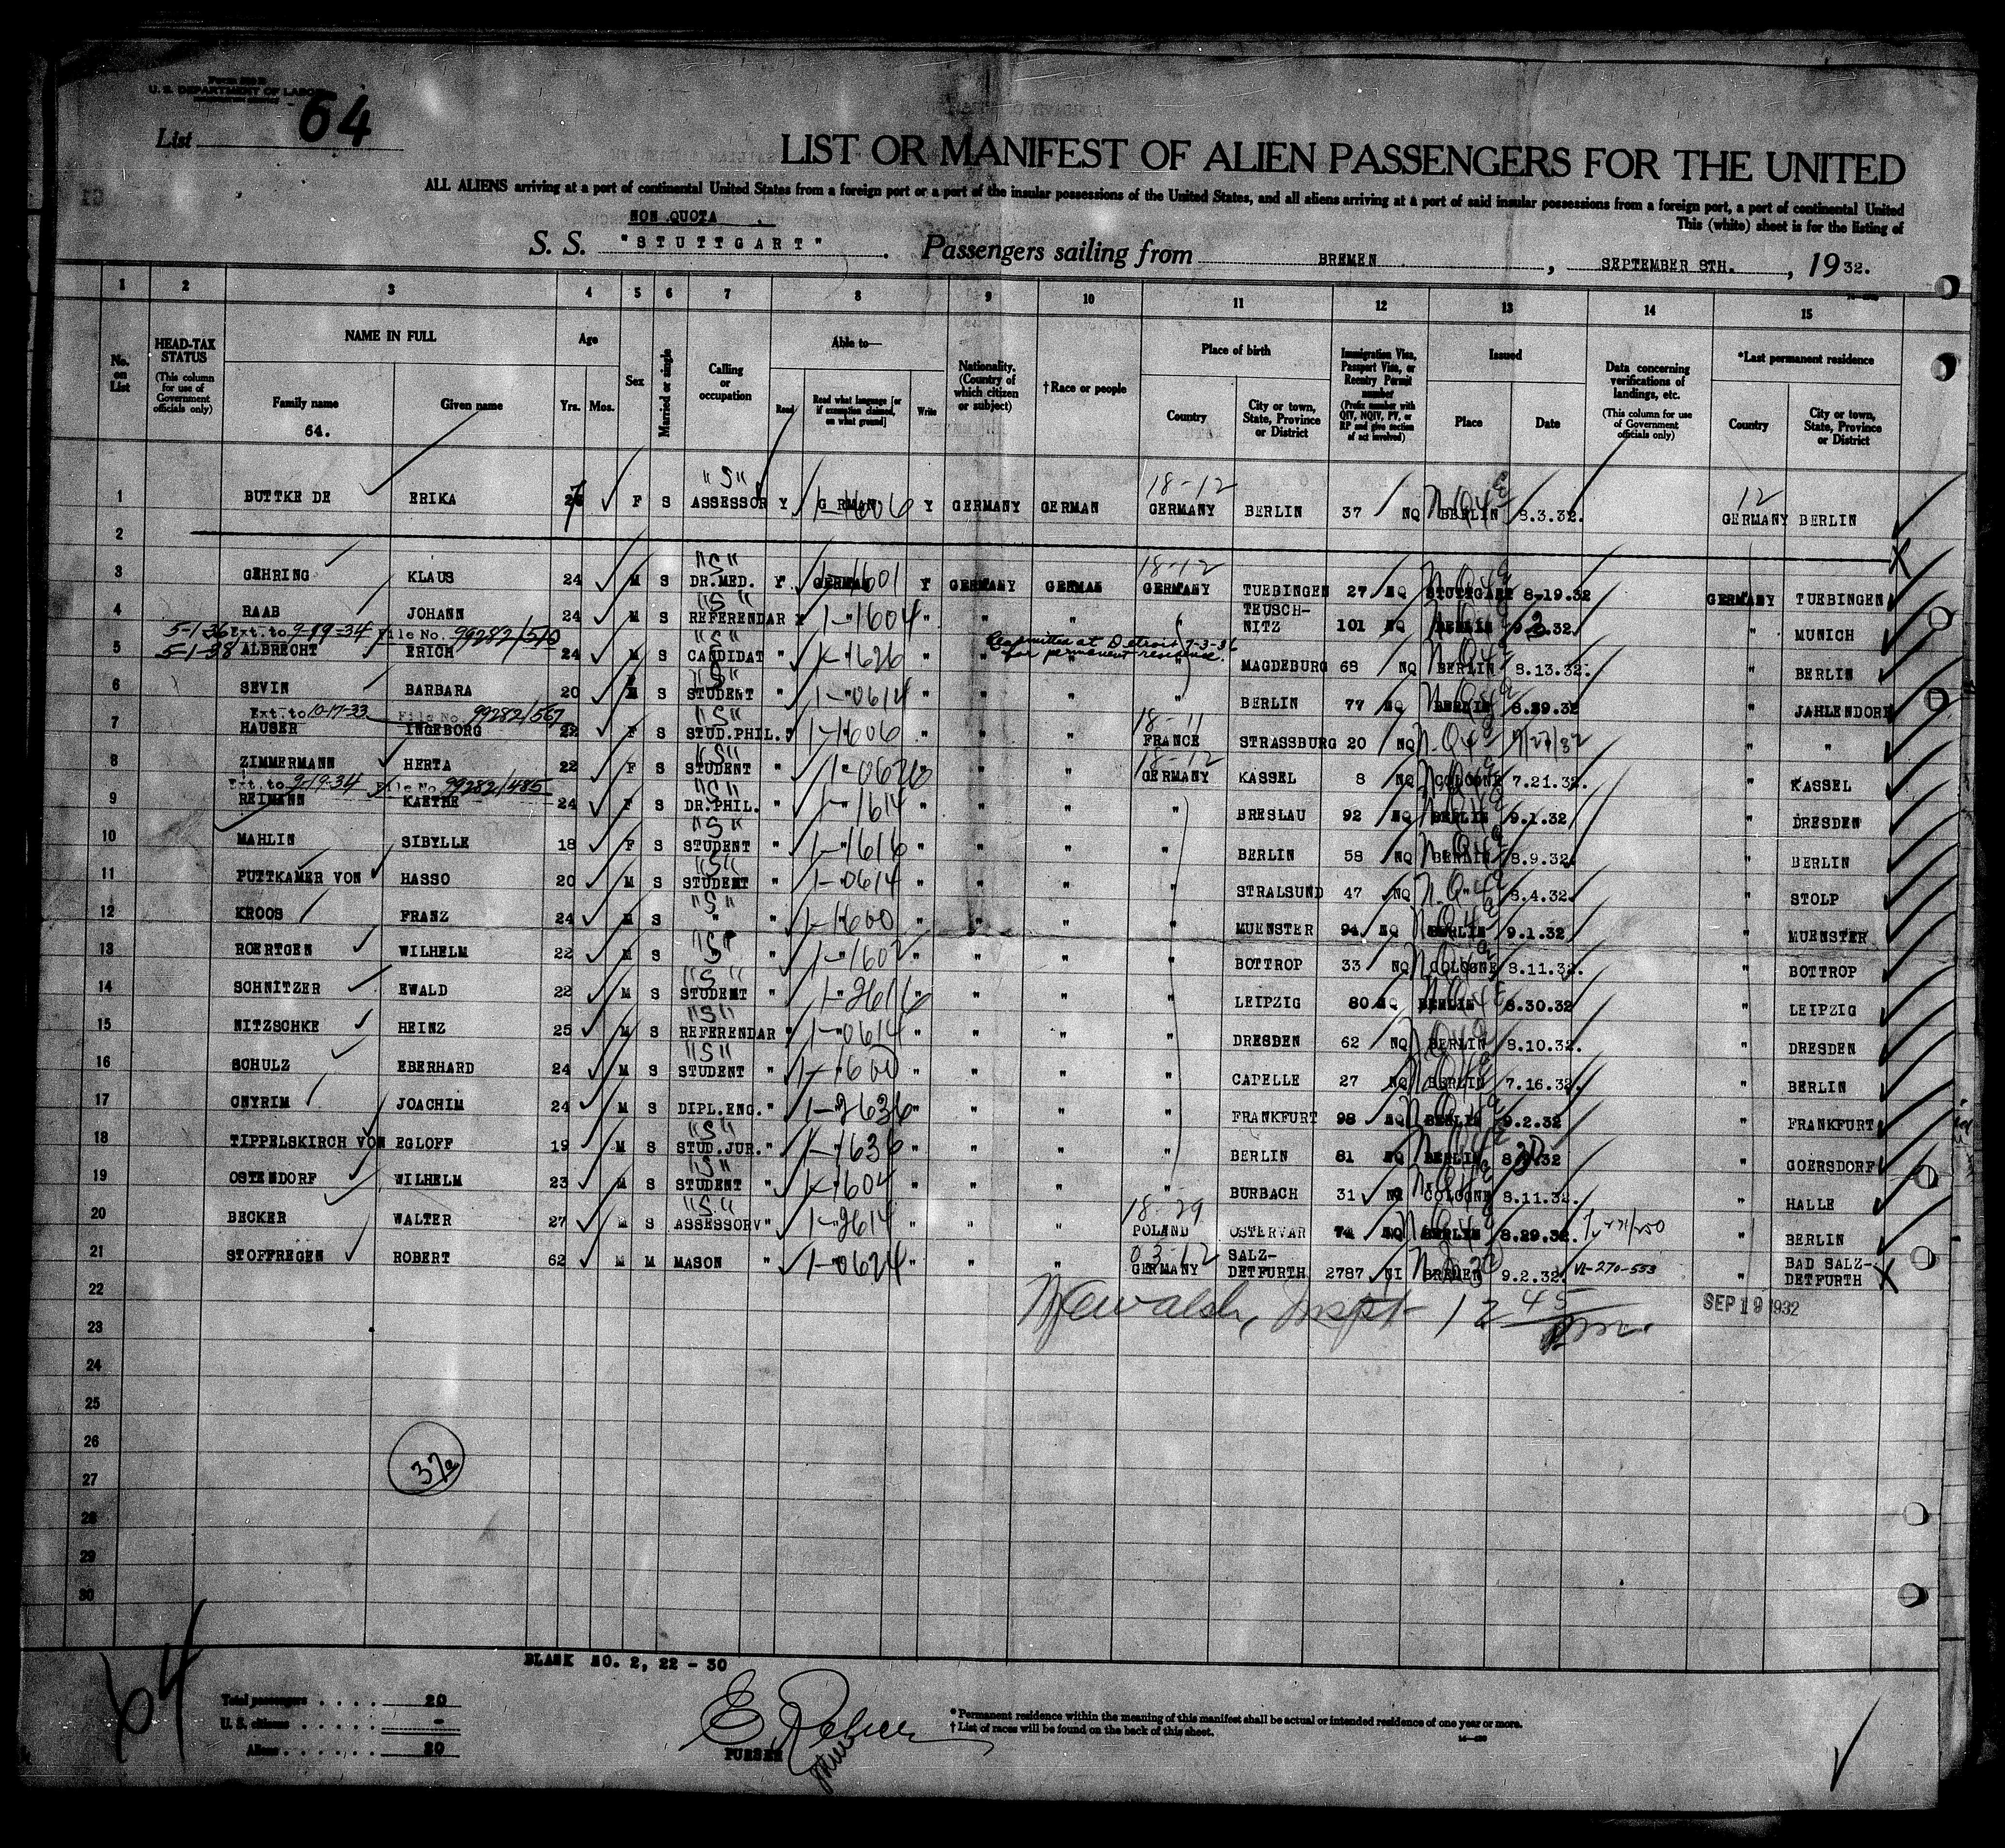 U. S. DEPARTMENT OF LABOR
List 64
LIST OR MANIFEST OF ALIEN PASSENGERS FOR THE UNITED
ALL ALIENS arriving at a port of continental United States from a foreign port or a port of the insular possessions of the United States, and all aliens arriving at a port of said insular possessions from a foreign port, a port of continental United
This (white) sheet is for the listing of
NON QUOTA
S. S. "STUTTGART". Passengers sailing from BREMEN, SEPTEMBER 8TH., 1932.
1 2 3 4 5 6 7 8 9 10 11 12 13 14 15
No. on List
HEAD-TAX STATUS (This column for use of Government officials only)
NAME IN FULL Family name Given name
64.
Age Yrs. Mos.
Sex
Married or single
Calling or occupation
Able to— Read Read what language [or if exemption claimed, on what ground] Write
Nationality. (Country of which citizen or subject)
†Race or people
Place of birth Country City or town, State, Province or District
Immigration Visa, Passport Visa, or Reentry Permit number (Prefix number with QIV, NQIV, PV, or RP and give section of act involved)
Issued Place Date
Data concerning verifications of landings, etc. (This column for use of Government officials only)
*Last permanent residence Country City or town, State, Province or District
"S" 18-12 12
1 BUTTKE DE ERIKA F S ASSESSOR Y 1-1606 Y GERMANY GERMAN GERMANY BERLIN 37 NQ BERLIN 8.3.32. GERMANY BERLIN
2
"S" 18-12
3 GEHRING KLAUS 24 M S DR.MED. Y GERMAN 1-1601 Y GERMANY GERMAN GERMANY TUEBINGEN 27 NQ STUTTGART 8-19.32 GERMANY TUEBINGEN
"S"
4 RAAB JOHANN 24 M S REFERENDAR Y 1-"1604 " " " " TEUSCH-NITZ 101 NQ BERLIN 9.2.32. " MUNICH
5-1-36 Ext. to 9-19-34 File No. 99282/510 "S" Readmitted at Detroit 9-3-36 for permanent residence.
5 5-1-38 ALBRECHT ERICH 24 M S CANDIDAT " 1-1626 " " " " MAGDEBURG 68 NQ BERLIN 8.13.32. " BERLIN
"S"
6 SEVIN BARBARA 20 S STUDENT " 1-"0614 " " " " BERLIN 77 NQ BERLIN 8.29.32 " JAHLENDORF
Ext. to 10-17-33 File No. 99282/567 "S" 18-11
7 HAUSER INGEBORG 22 F S STUD.PHIL. " 1-1606 " " " FRANCE STRASSBURG 20 NQ " "
"S" 18-12
8 ZIMMERMANN HERTA 22 F S STUDENT " 1-"0626 " " " GERMANY KASSEL 8 NQ COLOGNE 7.21.32. " KASSEL
Ext. to 9-19-34 File No. 99282/485 "S"
9 REIMANN KAETHE 24 F S DR.PHIL. " 1-"1614 " " " " BRESLAU 92 NQ BERLIN 9.1.32 " DRESDEN
"S"
10 MAHLIN SIBYLLE 18 F S STUDENT " 1-"1616 " " " " BERLIN 58 NQ BERLIN 8.9.32. " BERLIN
"S"
11 PUTTKAMER VON HASSO 20 M S STUDENT " 1-"0614 " " " " STRALSUND 47 NQ " 8.4.32. " STOLP
"S"
12 KROOS FRANZ 24 M S " " 1-"1600 " " " " MUENSTER 94. NQ BERLIN 9.1.32 " MUENSTER
"S"
13 ROERTGEN WILHELM 22 M S " " 1-"1602 " " " " BOTTROP 33 NQ COLOGNE 8.11.32. " BOTTROP
"S"
14 SCHNITZER EWALD 22 M S STUDENT " 1-"2616 " " " " LEIPZIG 80 NQ BERLIN 8.30.32 " LEIPZIG
"S"
15 NITZSCHKE HEINZ 25 M S REFERENDAR " 1-"0614 " " " " DRESDEN 62 NQ BERLIN 8.10.32. " DRESDEN
"S"
16 SCHULZ EBERHARD 24 M S STUDENT " 1-"1600 " " " " CAPELLE 27 NQ BERLIN 7.16.32. " BERLIN
17 GNYRIM JOACHIM 24 M S DIPL.ENG. " 1-"2636 " " " " FRANKFURT 98 NQ BERLIN 9.2.32 " FRANKFURT
"S"
18 TIPPELSKIRCH VON EGLOFF 19 M S STUD.JUR. " 1-"1636 " " " " BERLIN 81 NQ BERLIN " GOERSDORF
"S"
19 OSTENDORF WILHELM 23 M S STUDENT " 1-"1604 " " " " BURBACH 31 COLOGNE 8.11.32. " HALLE
"S" 18-29
20 BECKER WALTER 27 M S ASSESSOR " 1-"2614 " " " POLAND OSTERVAR 74 NQ BERLIN 8.29.32. " BERLIN
03-12
21 STOFFREGEN ROBERT 62 M M MASON " 1-"0624 " " " GERMANY SALZ-DETFURTH 2787 NI BREMEN 9.2.32. VL-270-553 " BAD SALZ-DETFURTH
22 Inspt 12 45 SEP 19 1932
23
24
25
26
27
28
29
30
BLANK NO. 2, 22 - 30
64
Total passengers . . . . 20
U. S. citizens . . . . . -
Aliens . . . . . . 20
PURSER
* Permanent residence within the meaning of this manifest shall be actual or intended residence of one year or more.
† List of races will be found on the back of this sheet.